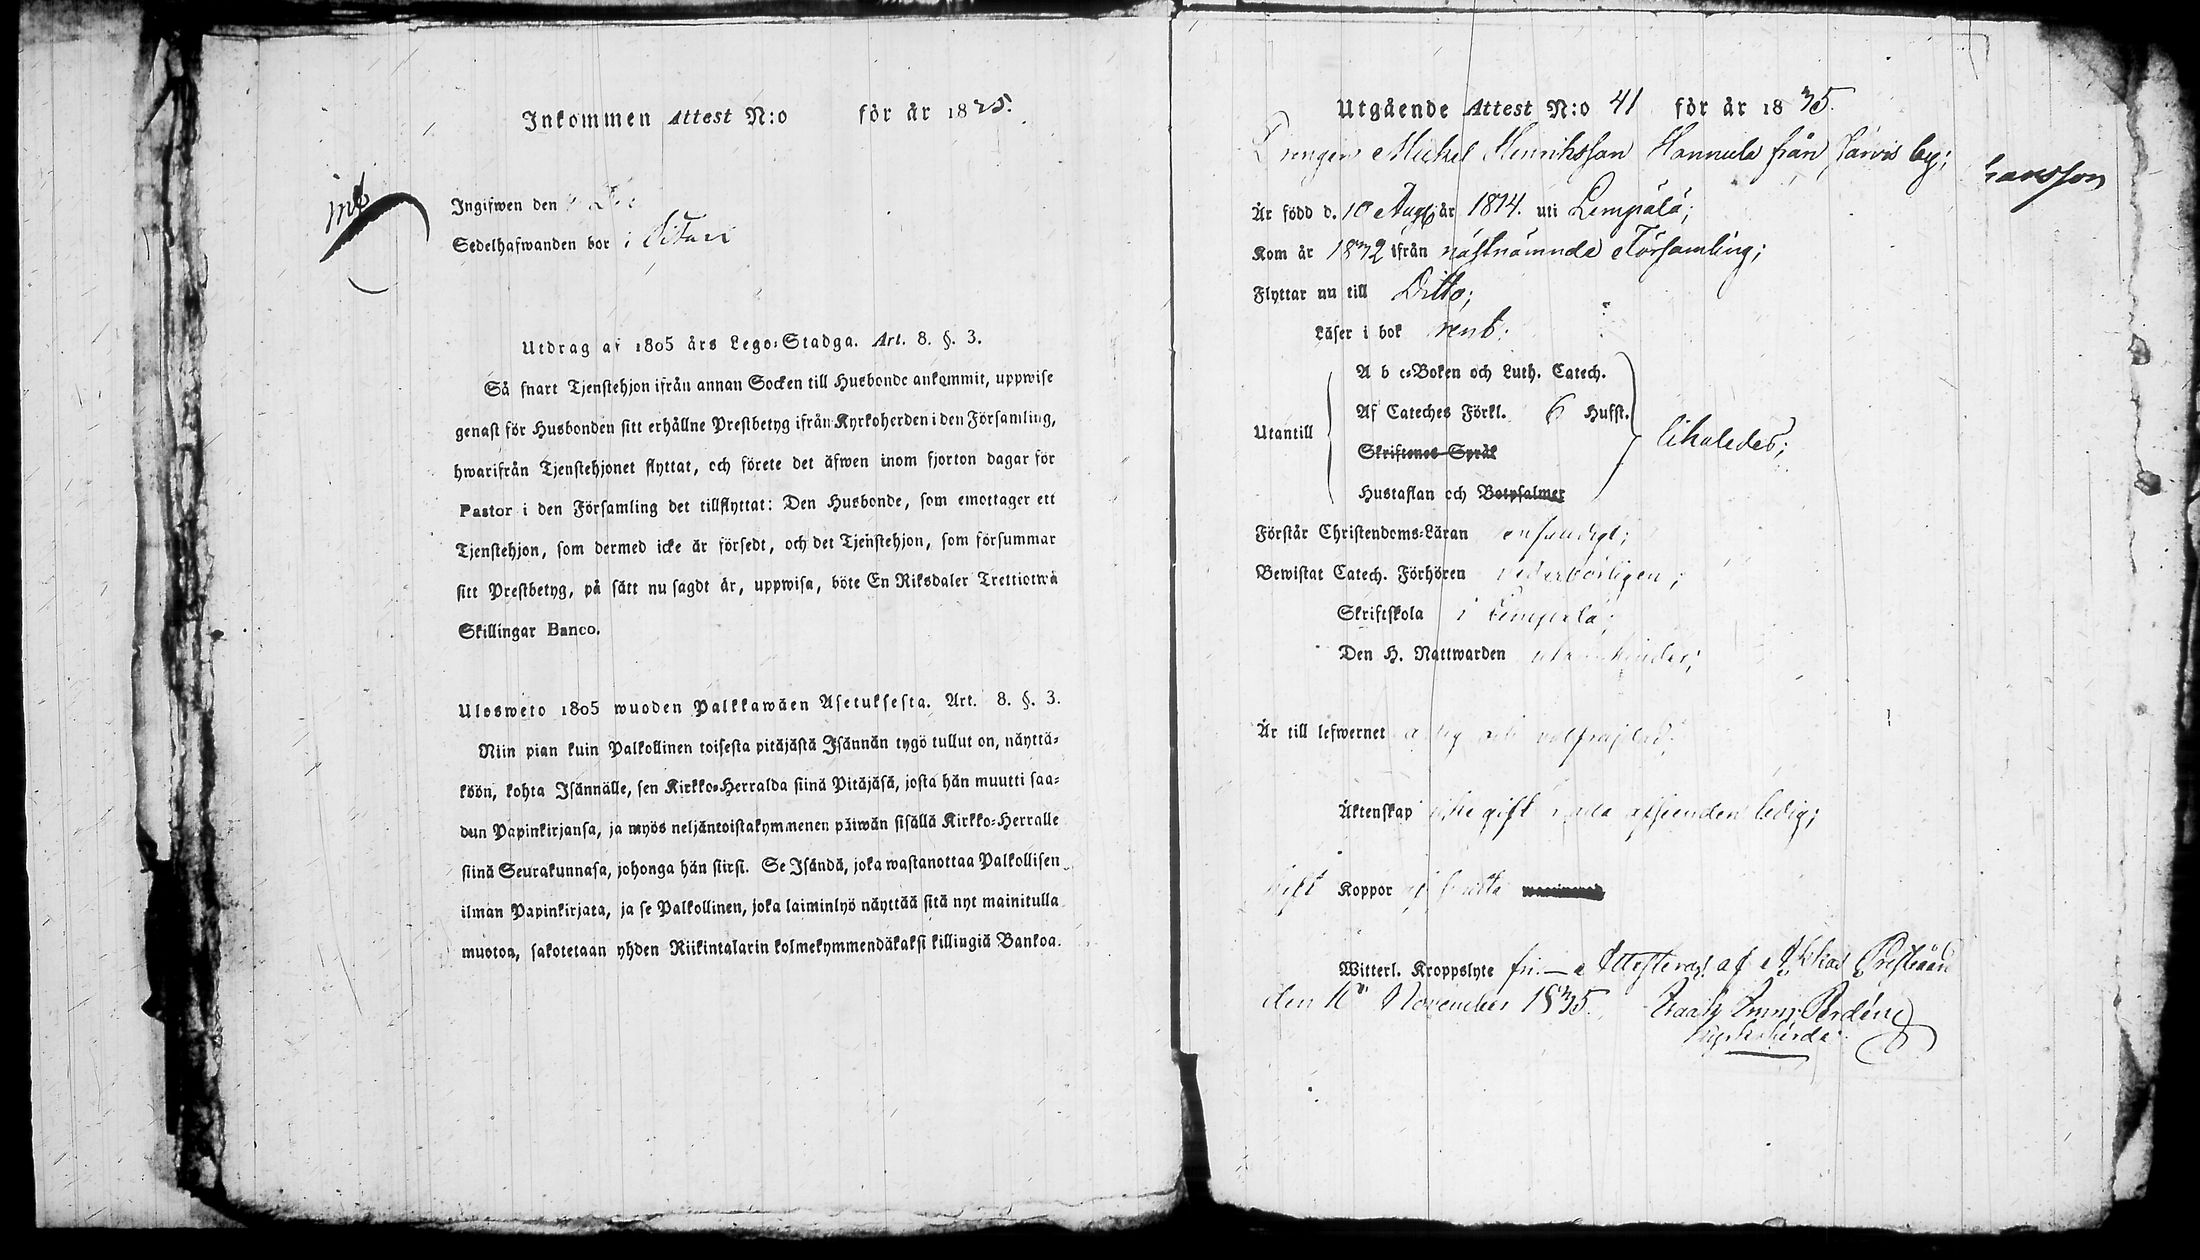 Inkommen Attest N:o för år 1835.
Ingifwen den Dec
Sedelhafwanden bor i
Utdrag af 1805 års Lego-Stadga. Art. 8. §. 3.
Så snart Tjenstehjon ifrån annan Socken till Husbonde ankommit, uppwise
genast för Husbonden sitt erhållne Prestbetyg ifrån Kyrkoherden i den Församling,
hwarifrån Tjenstehjonet flyttat, och förete det äfwen inom fjorton dagar för
Pastor i den Församling det tillflyttat: Den Husbonde, som emottager ett
Tjenstehjon, som dermed icke är försedt, och det Tjenstehjon, som försummar
sitt Prestbetyg, på sätt nu sagdt är, uppwisa, böte En Riksdaler Trettiotwå
Skillingar Banco.
Ulosweto 1805 wuoden Palkkawäen Asetuksesta. Art. 8. §. 3.
Niin pian kuin Palkollinen toisesta pitäjästä Isännän tygö tullut on, näyttä-
köön, kohta Isännälle, sen Kirkko-Herralda siinä Pitäjäsä, josta hän muutti saa-
dun Papinkirjansa, ja myös neljäntoistakymmenen päiwän sisällä Kirkko-Herralle
siinä Seurakunnasa, johonga hän siirsi. Se Isändä, joka wastanottaa Palkollisen
ilman Papinkirjata, ja se Palkollinen, joka laiminlyö näyttää sitä nyt mainitulla
muotoa, sakotetaan yhden Riikintalarin kolmekymmendäkaksi killingiä Bankoa.
Utgående Attest N:o 41 för år 1835.
Drengen Michel Henriksson Hannula från Järvis by;
hansson
Är född d. 10 Aug år 1814. uti Lempälä;
Kom år 1832 ifrån nästnämnde Församling;
Flyttar nu till Ditto;
Läser i bok rent;
A b c-Boken och Luth. Catech.
Af Cateches Förkl. 6 Hufst.
Utantill likaledes;
Skriftenes Språk
Hustaflan och Botpsalmer
Förstår Christendoms-Läran enfaldigt;
Bewistat Catech. Förhören wederbörligen;
Skriftskola i Lempälä;
Den H. Nattwarden utan hinder;
Är till lefwernet ärlig och välfrejdad;
Äktenskap icke gift ledig;
haft Koppor
Witterl. Kroppslyte fri. — Attesteras af Prestgård
den November 1835.
Kyrkoherde.